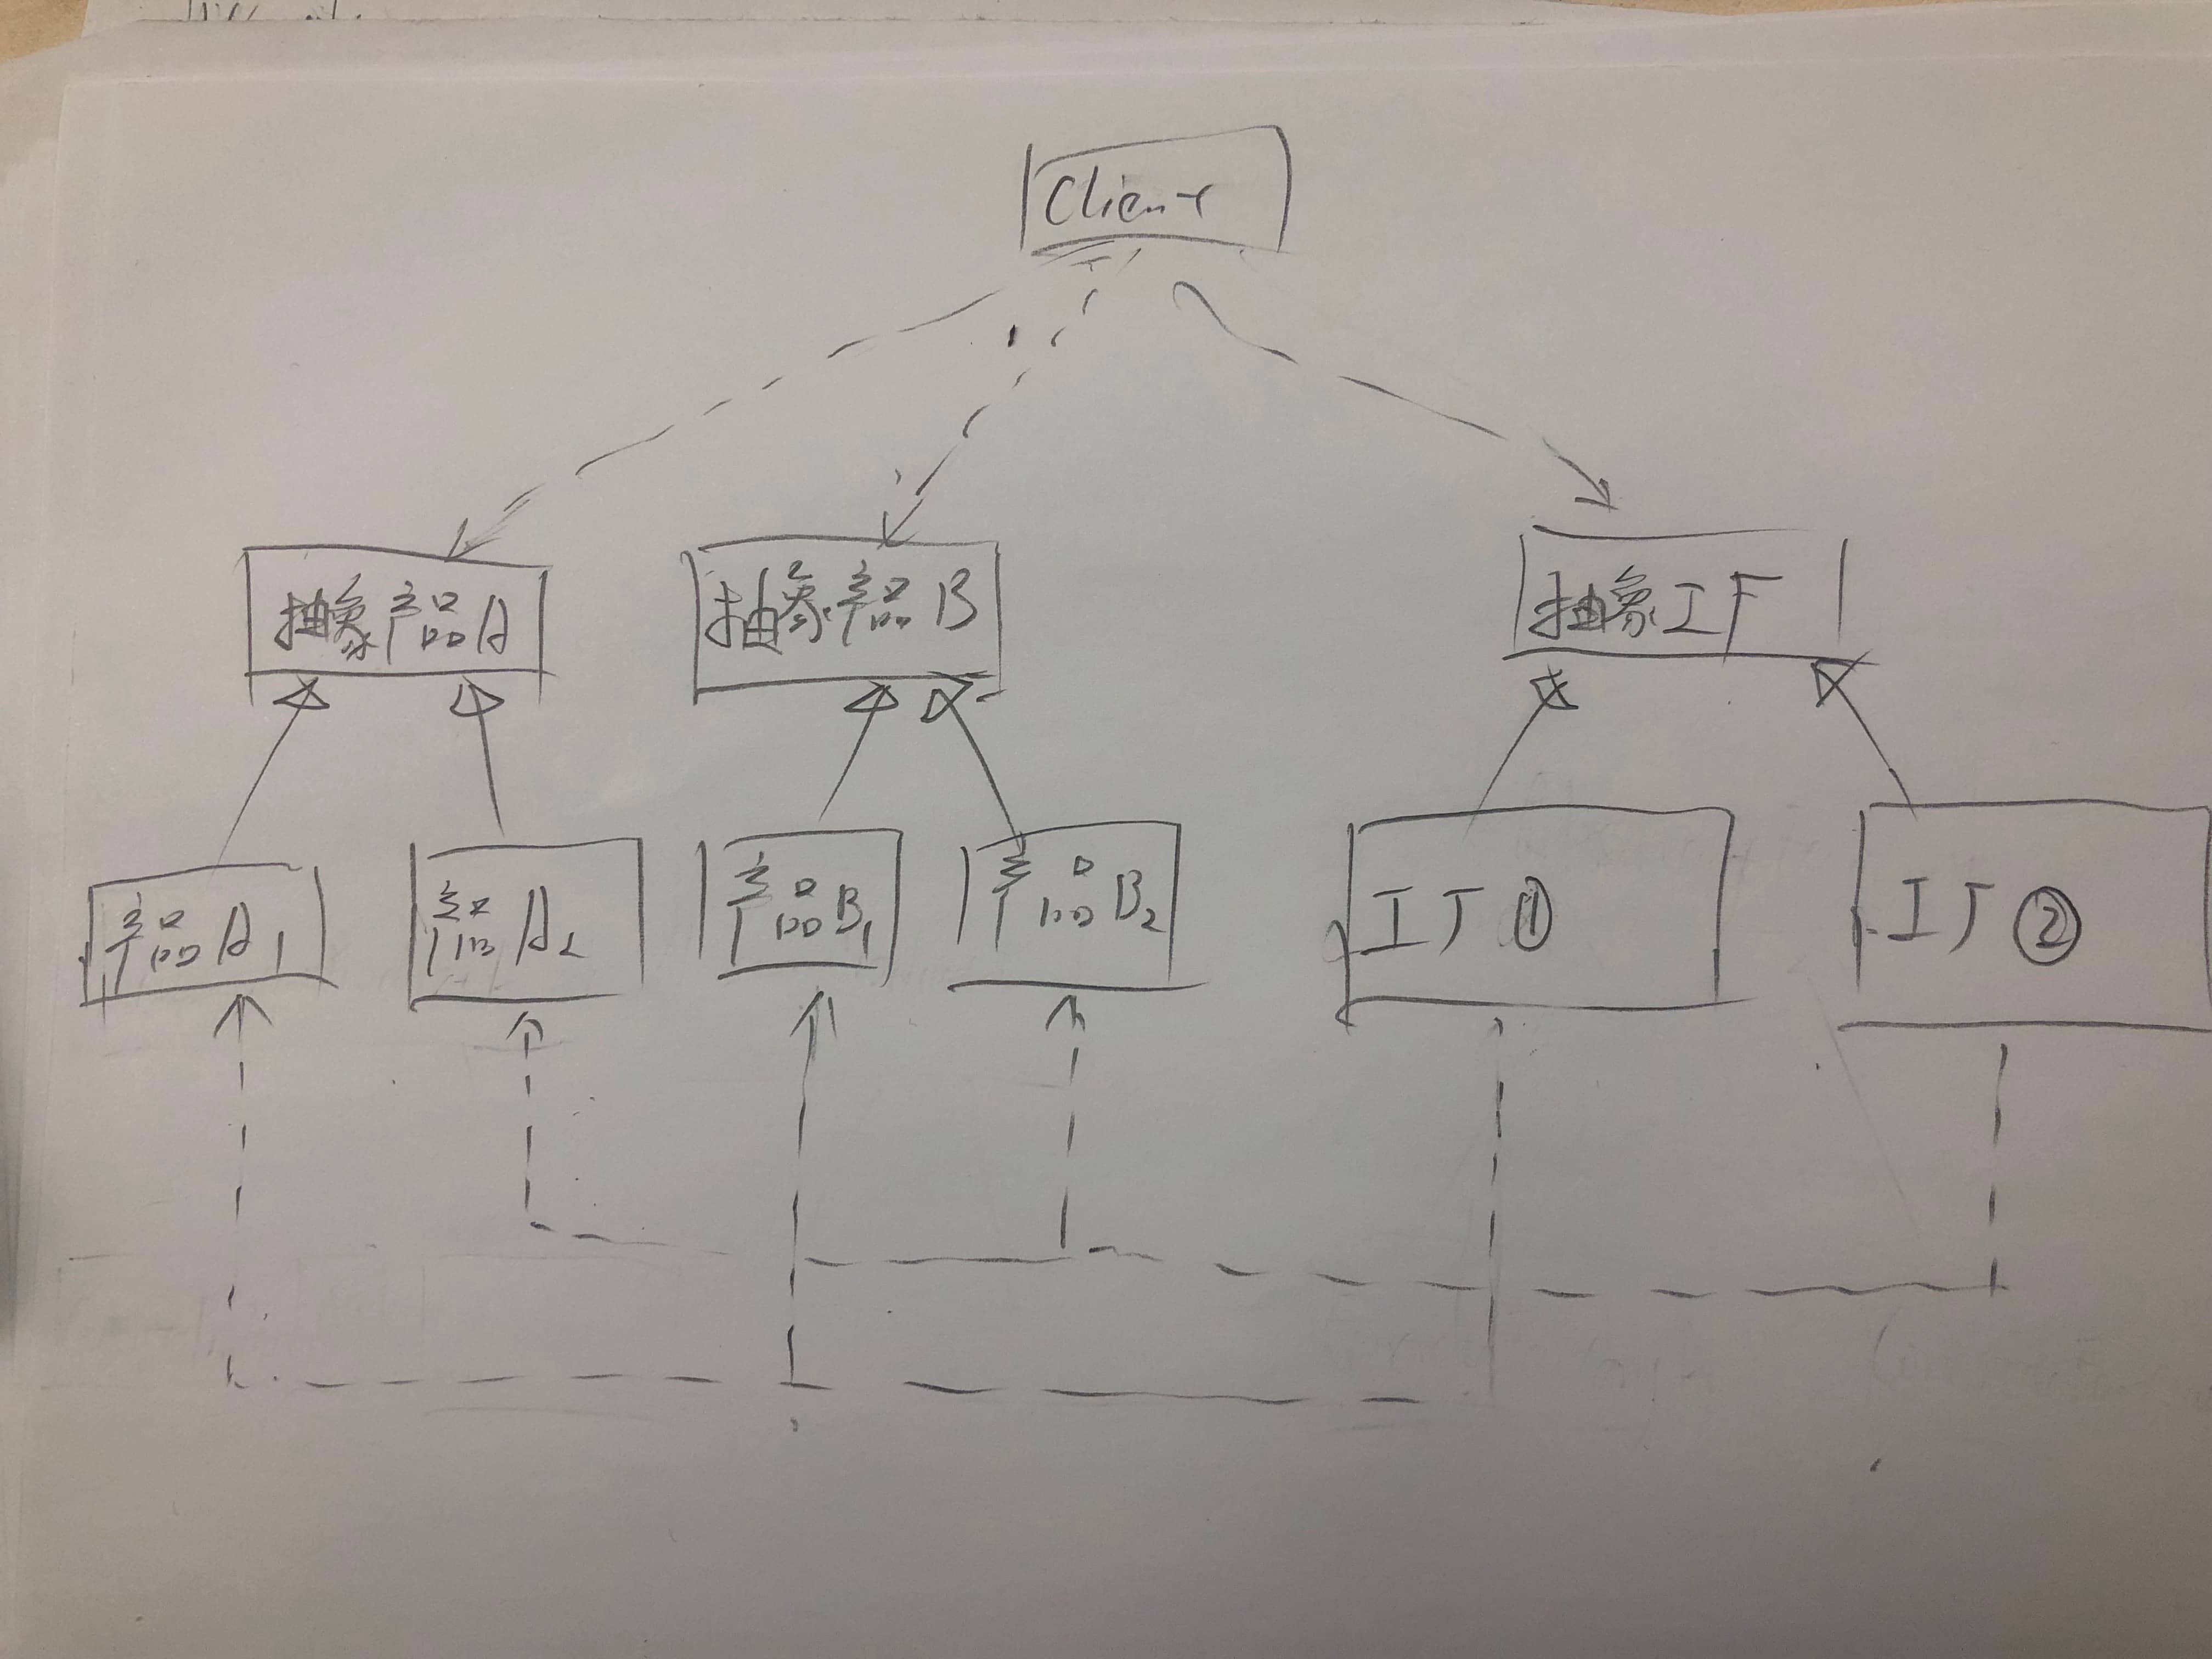 Client
抽象产品A
抽象产品B
抽象工厂
产品A1
产品A2
产品B1
产品B2
工厂①
工厂②